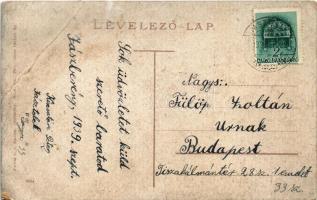 LEVELEZŐ-LAP
Sok üdvözletet küld
szerető barátod
Jászberény, 1939. szept.
Nagys:
Fülöp Zoltán
Urnak
Budapest
Tiszakálmántér 28 sz. I. emelet
33 sz.